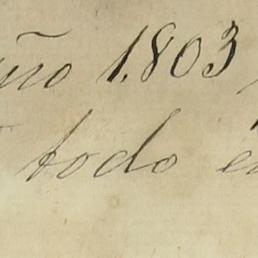 año 1.803
todo